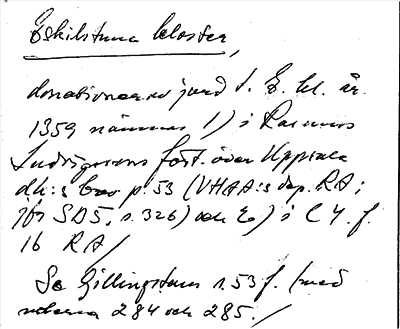 Eskilstuna kloster,
donationen av jord t. E. kl. år
1359 nämnes 1) i Rasmus
Ludvigssons fört. över Uppsala
dk:s brev p. 53 (VHAA:s dep. RA;
jfr SD5, s. 326) och 2) i C 4. f.
16 RA/
Se Gillingstam s. 53 f. (med
noterna 284 och 285./